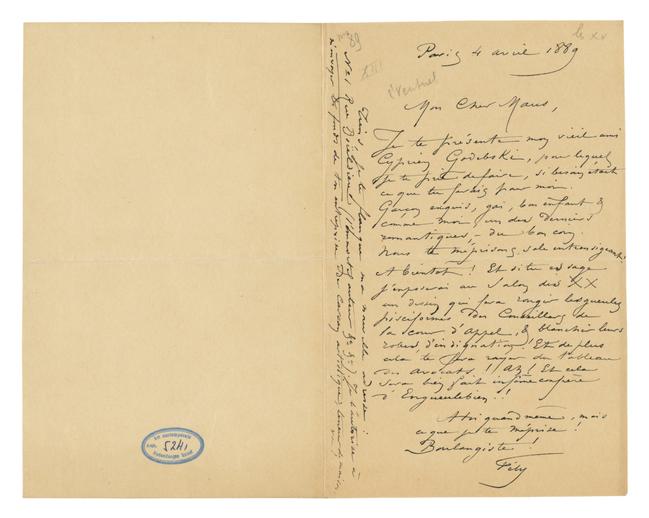 Paris 4 avril 1889
Mon Cher Maus,
Je te présente mon vieil ami
Cyprien Godebski, pour lequel
je te prie de faire, si besoin était
ce que tu ferais pour moi.
Garçon exquis, gai, bon enfant &
comme moi, un des derniers
romantiques, – du bon coin.
Nous te méprisons, sale intransigeant!
A bientôt! Et si tu es sage
j'exposerai au Salon des XX
un dessin qui fera rougir les gueules
pisciformes des Conseillers de
la cour d'Appel, & blanchir leurs
robes, d'indignation! Et de plus
cela te fera rayer du tableau
des avocats! Ah! Et cela
sera bien fait infâme compère
d'Engueulebien!!
A toi quand même, mais
ce que je te méprise!
Boulangiste!
Fély
Tiens je te flanque ma nouvelle adresse:
No 1 Rue
Je t'autorise à
m'envoyer les fonds de ton entreprise de
89
XIII
les XX
l'éventuel
Art contemporain
5241